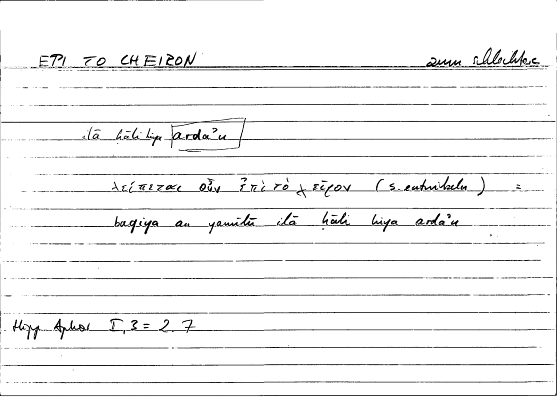 EPI TO CHEIRON zum Schlechten
ilā ḥāli hiya arda'u
λείπεται οὖν ἐπὶ τὸ χεῖρον (s. entwickeln) =
baqiya an yamīlū ilā ḥāli hiya arda'u
Hipp Aphor I,3 = 2.7